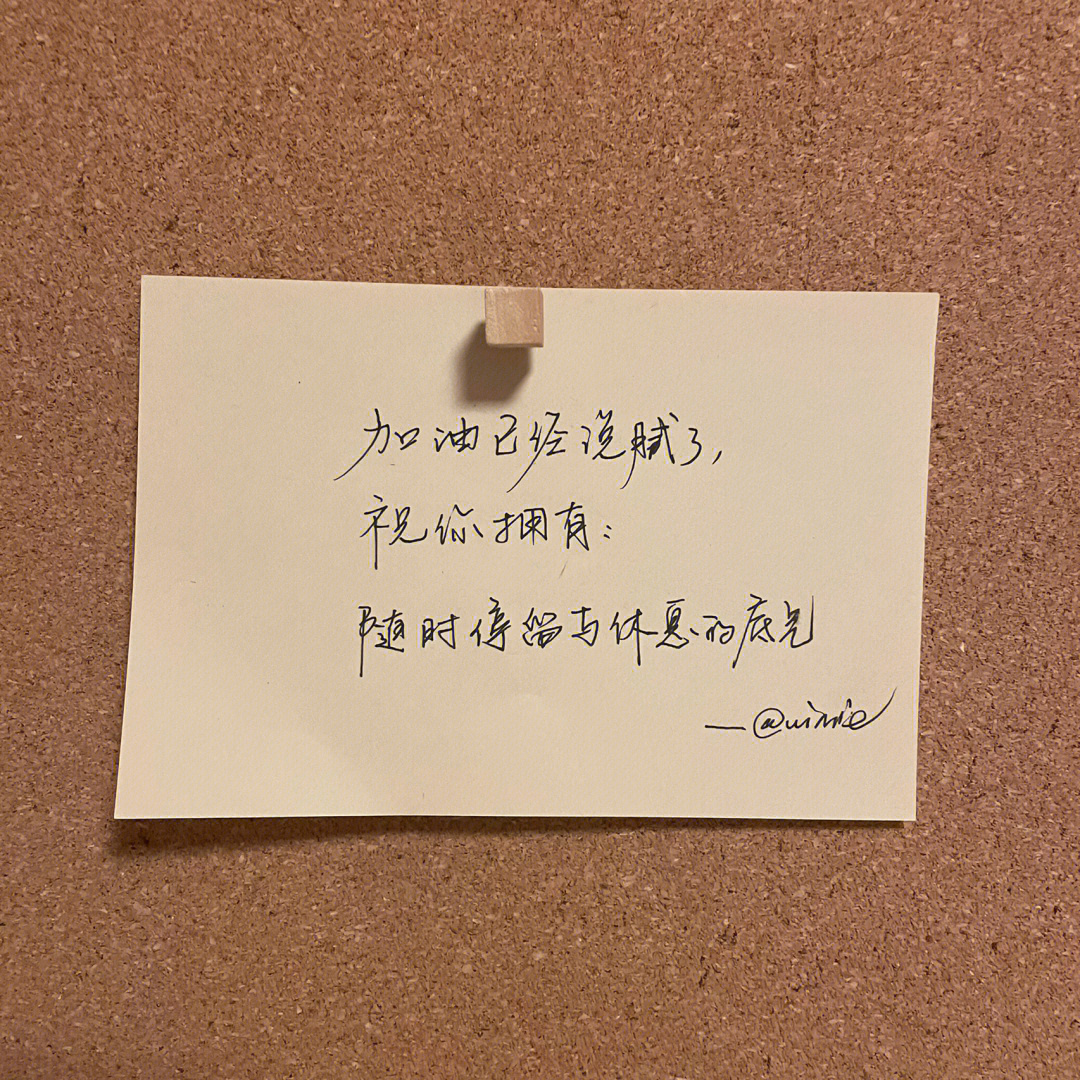 加油已经说腻了,
祝你拥有:
随时停留与休息的底气
—@winnie